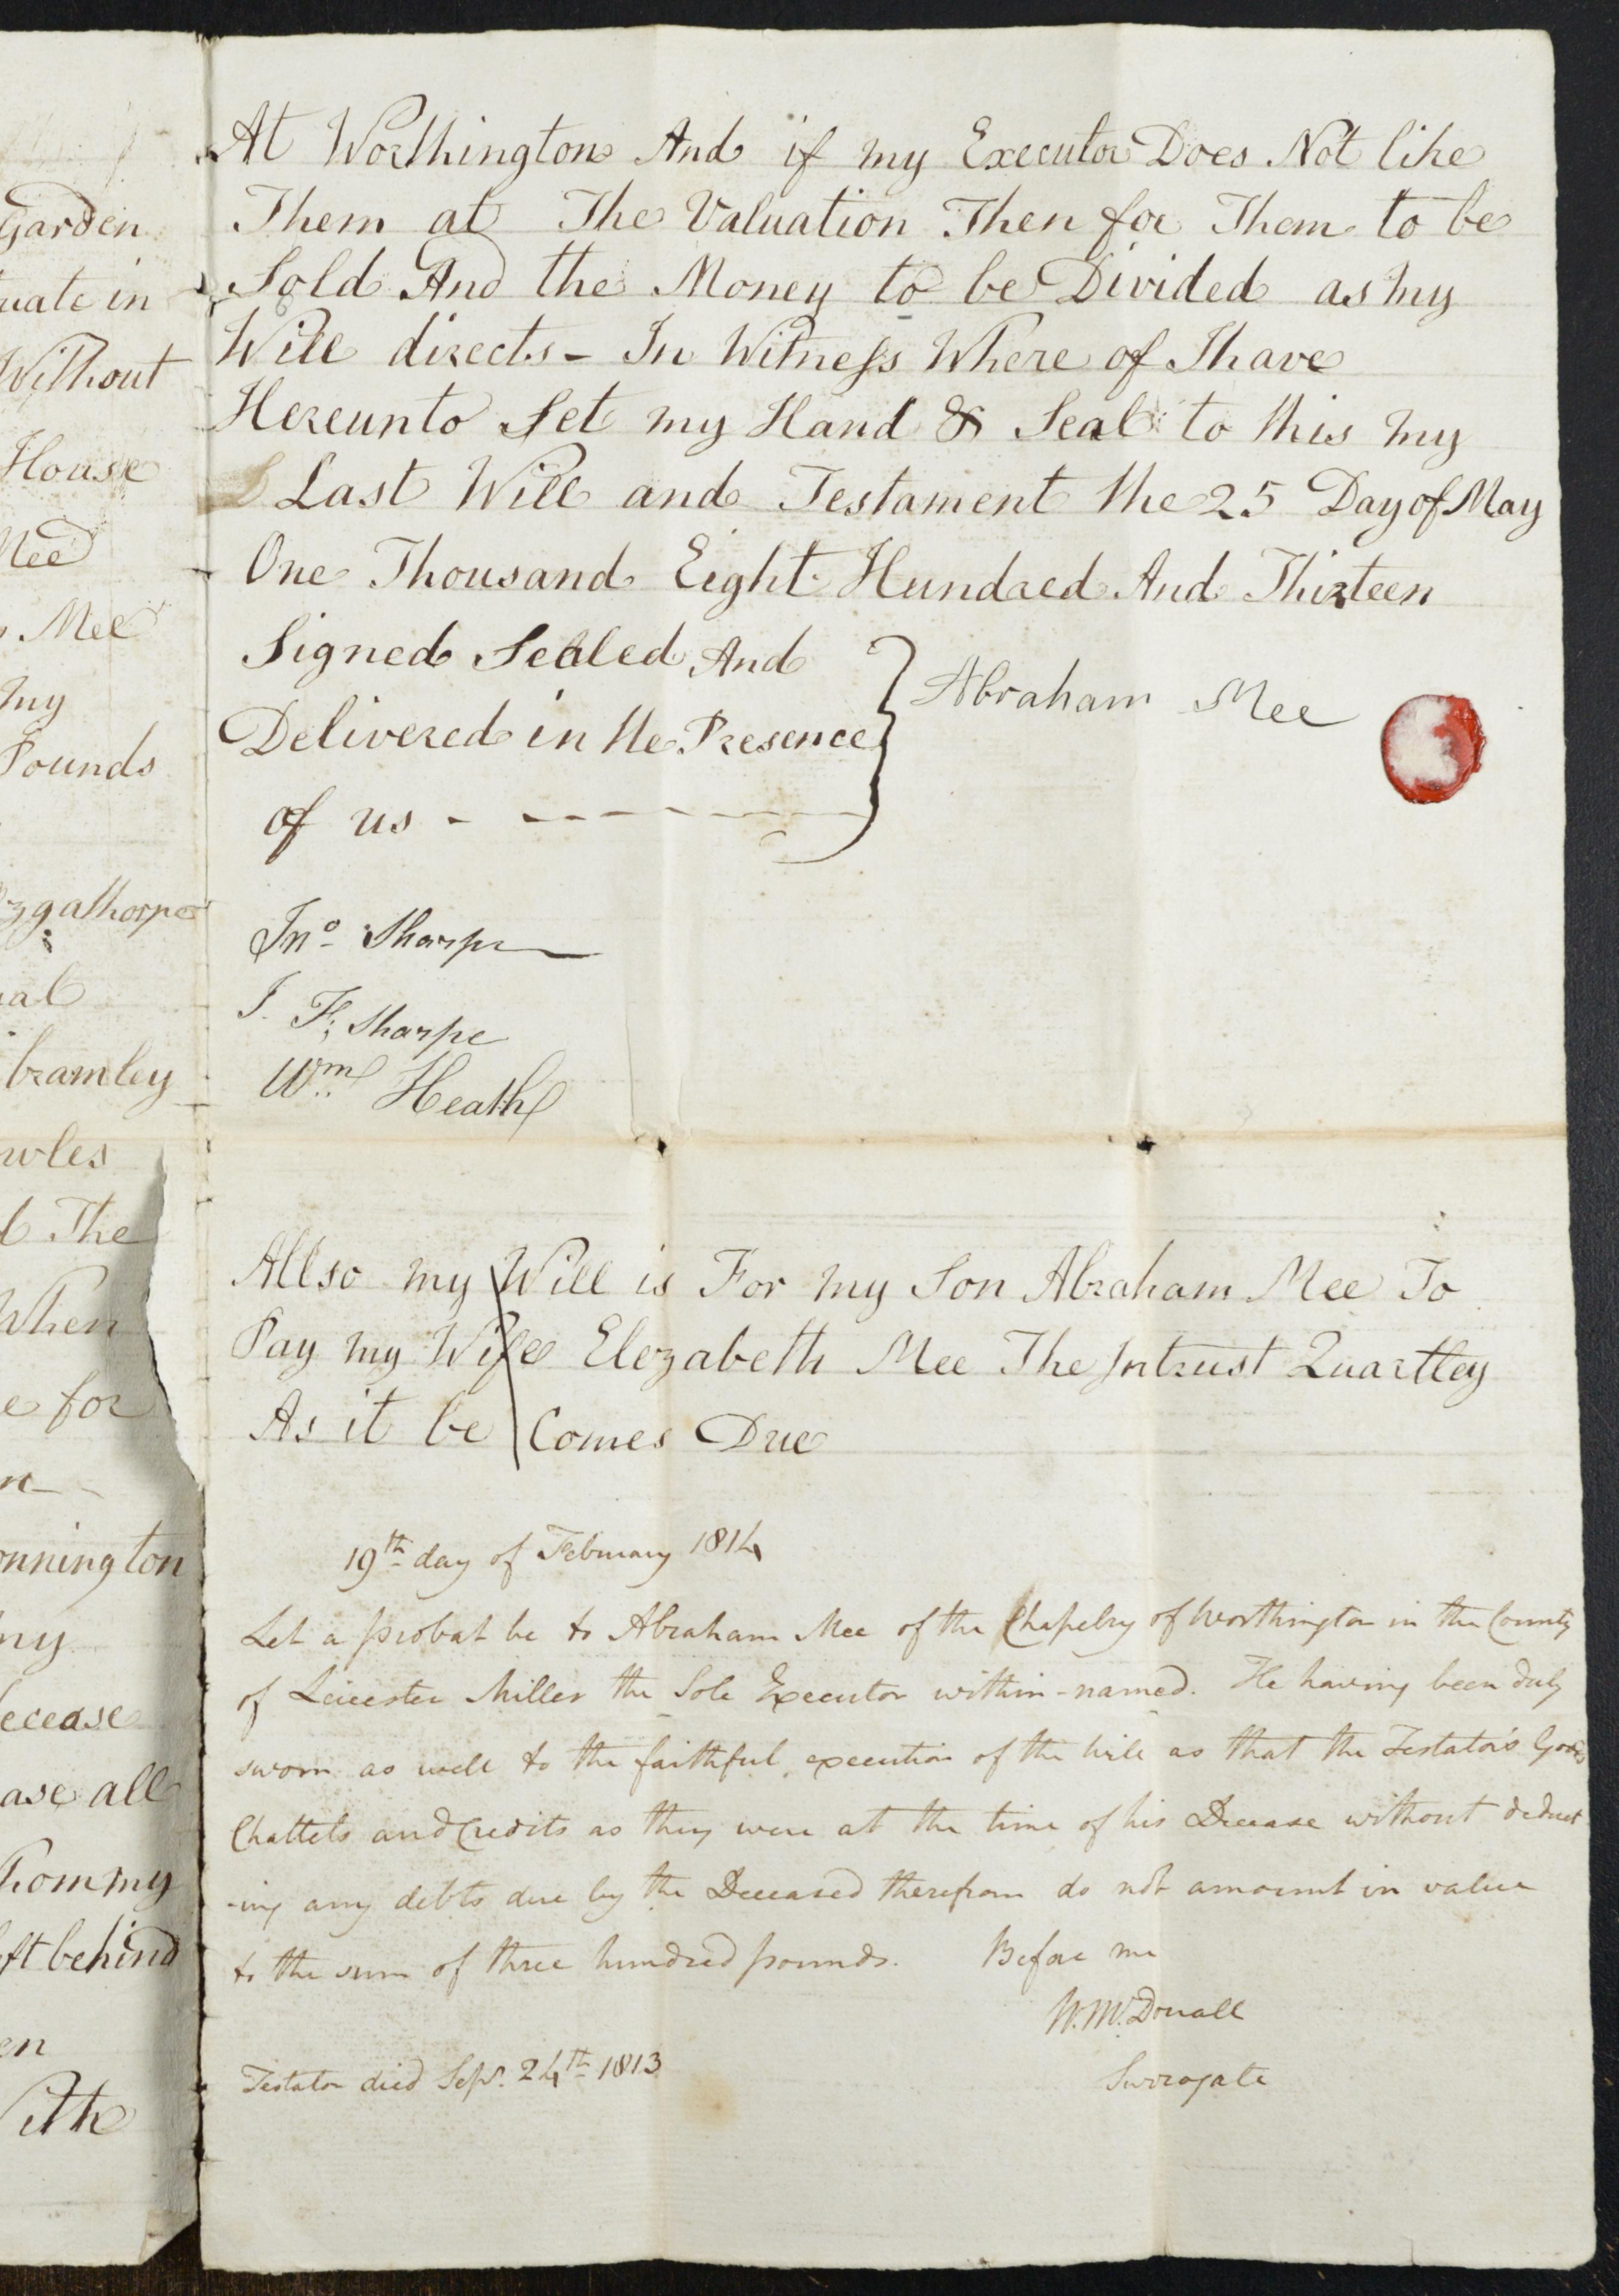 Garden
uate in
Without
House
Mee
Mee
my
Pounds
ggathorpe
al
bramley
wles
The
When
e for
onnington
my
ecease
ase all
hom my
eft behind
en
With
At Worthington And if my Executor Does Not like
Them at The Valuation Then for Them to be
Sold And the Money to be Divided as my
Will directs - In Witness Where of I have
Hereunto Set my Hand & Seal to this my
Last Will and Testament the 25 Day of May
One Thousand Eight Hundred And Thirteen
Signed Sealed And
Delivered in the Presence
of us - - - - - - -
Abraham Mee
Jno. Sharpe
J. F. Sharpe
Wm. Heath
Allso my Will is For my Son Abraham Mee To
Pay my Wife Elezabeth Mee The Intrust Quartley
As it be Comes Due
19th day of February 1814
Let a probat be to Abraham Mee of the Chapelry of Worthington in the County
of Leicester Miller the Sole Executor within-named. He having been duly
sworn as well to the faithful execution of the will as that the Testator's Goods
Chattels and Credits as they were at the time of his Decease without deduct
-ing any debts due by the Deceased therefrom do not amount in value
to the sum of three hundred pounds. Before me
W. McDouall
Surrogate
Testator died Sepr. 24th 1813